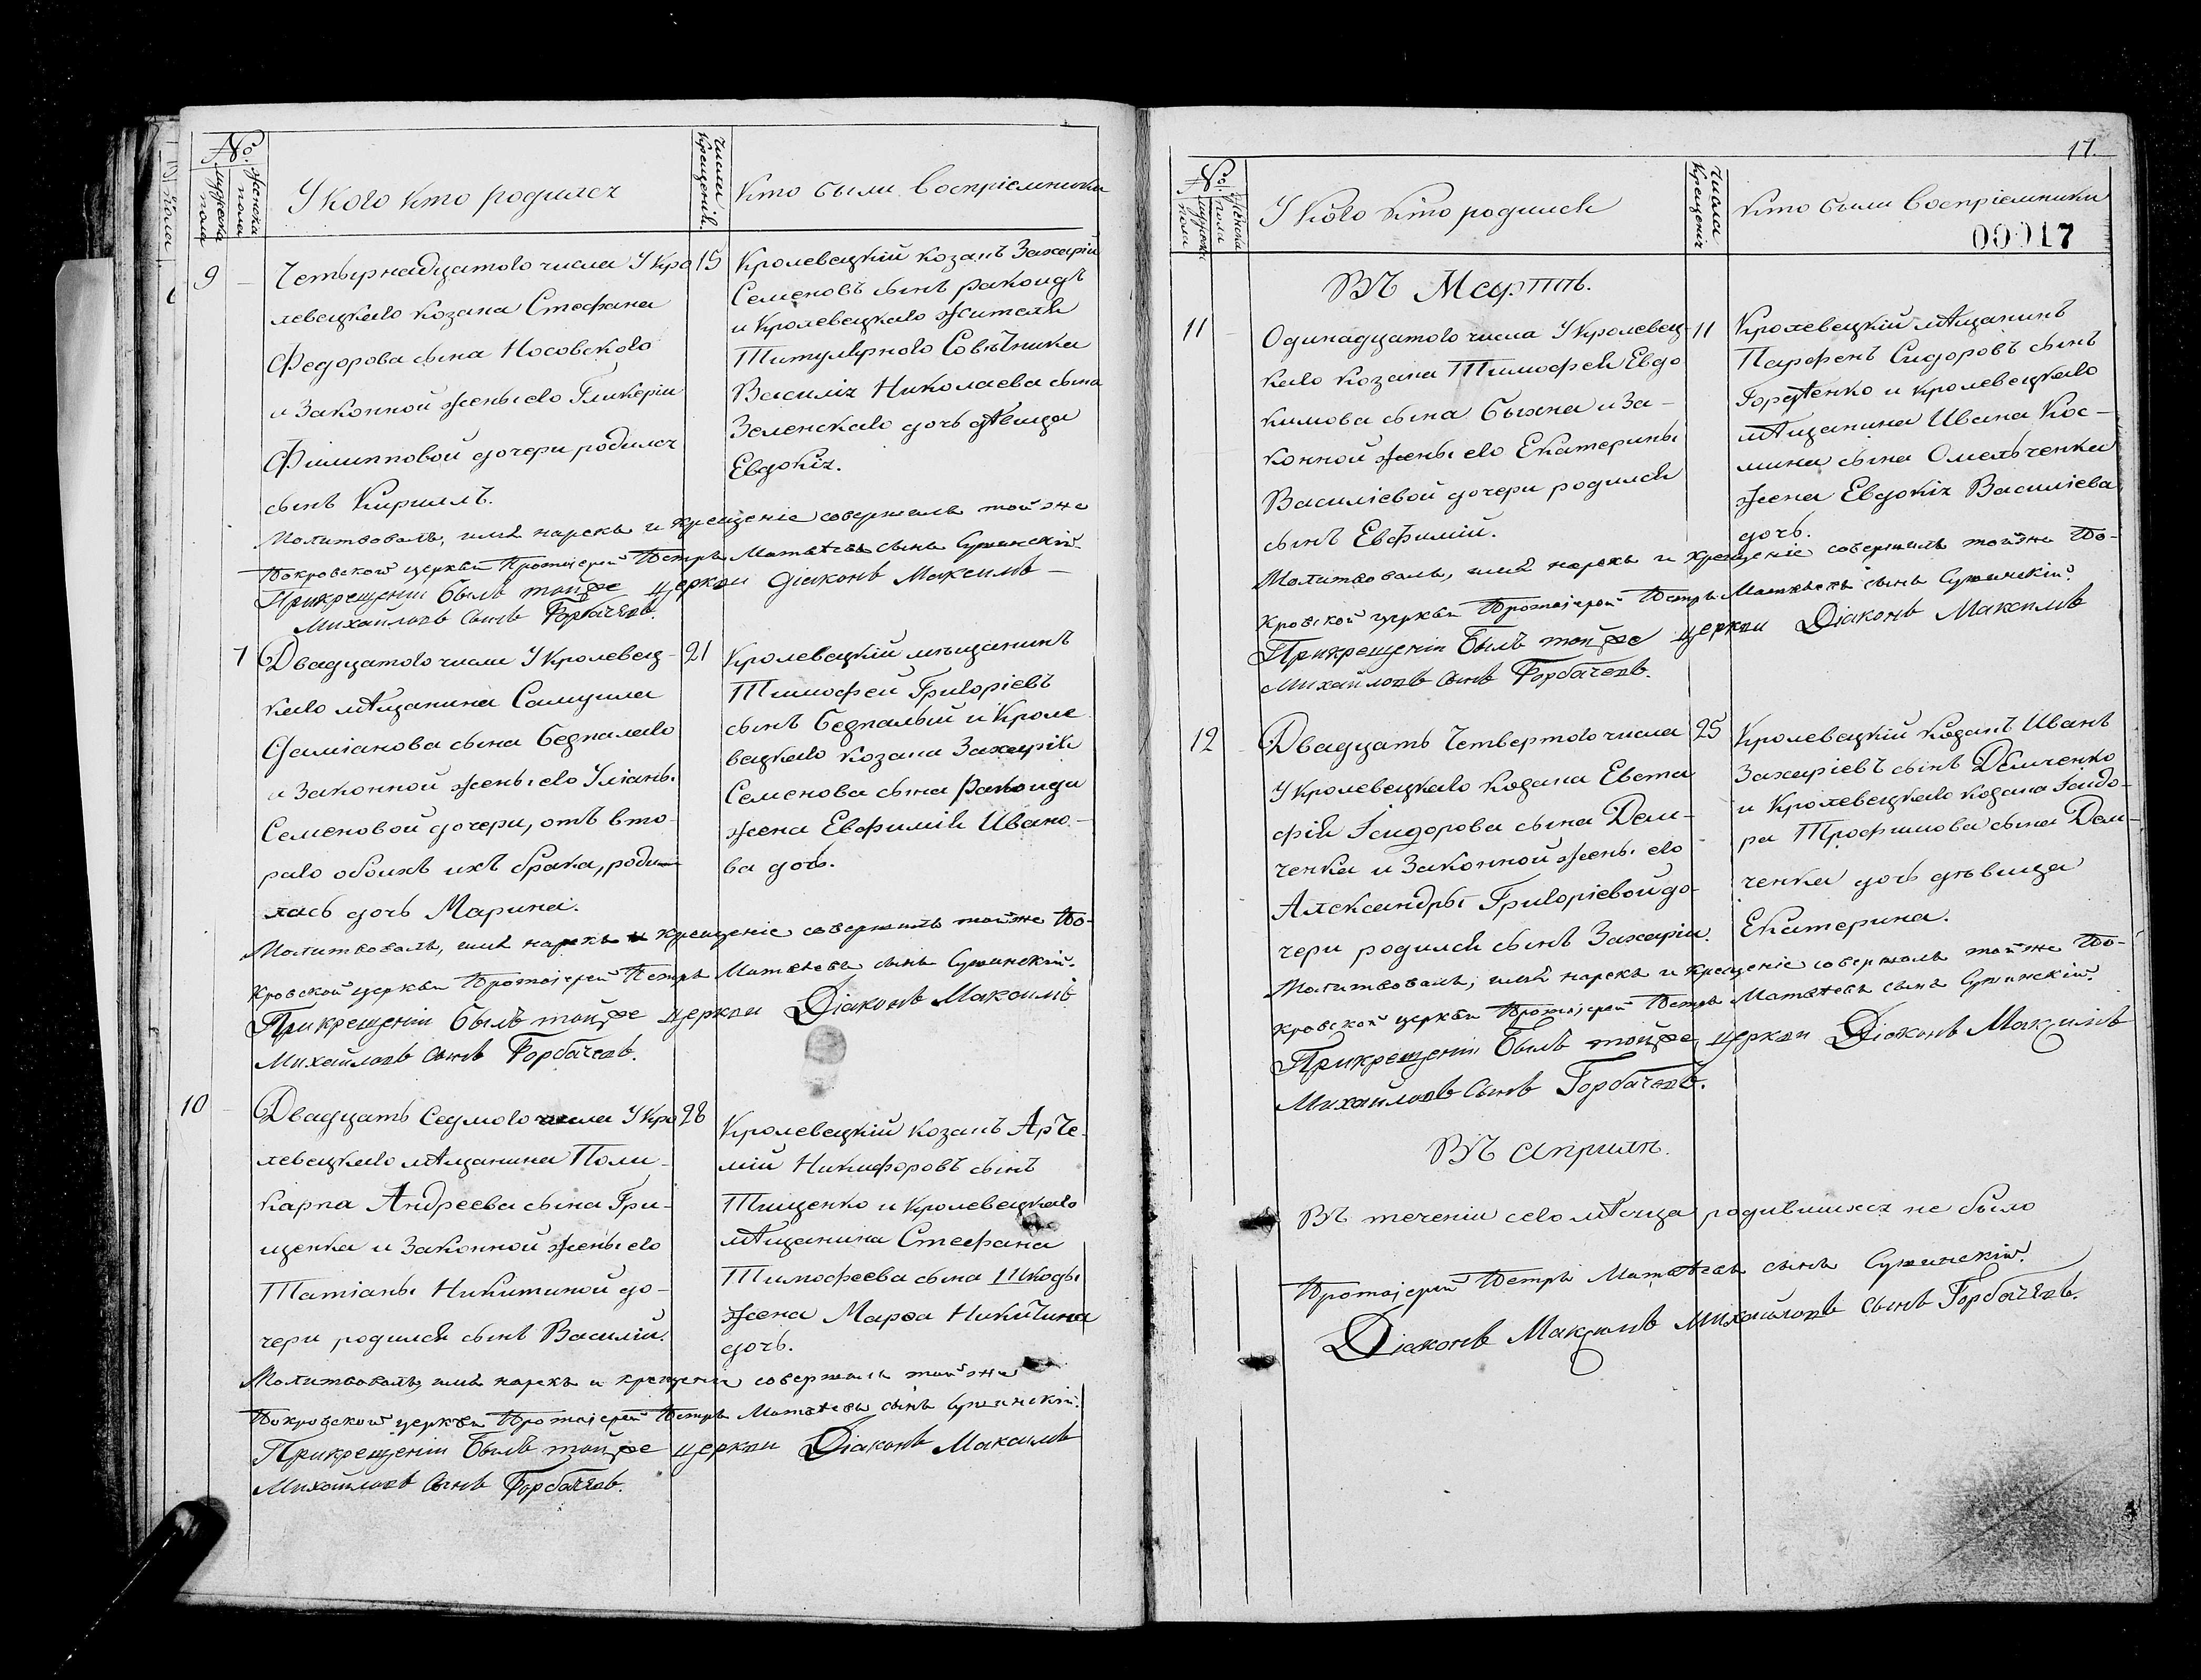 №.
мужеска пола
женска пола
У кого кто родился
числа крещенія.
Кто были воспріемники
9
Четырнадцатого числа У Кро
левецкаго козака Стефана
Федорова сына Носовского
и законной жены его Гликеріи
Филипповой дочери родился
сынъ Кириллъ.
15
Кролевецкій козакъ Захарій
Семеновъ сынъ Ракоидъ
и Кролевецкаго жителя
Титулярного Совѣтника
Василія Николаева сына
Зеленскаго дочь дѣвица
Евдокія.
Молитвовалъ, имя нарекъ и крещеніе совершилъ той же
Покровской церкви Протоіерей Петръ Матвѣевъ сынъ
При крещеніи былъ той же церкви Діаконъ Максимъ
Михайловъ сынъ Горбачевъ.
7
Двадцатого числа У Кролевец-
каго мѣщанина Самуила
Даміанова сына Беспалаго
и законной жены его Уліаны
Семеновой дочери, отъ вто-
раго обоихъ ихъ брака, роди-
лась дочь Марина.
21
Кролевецкій мѣщанинъ
Тимофей Григоріевъ
сынъ Беспалый и Кроле
вецкаго козака Захарія
Семенова сына Ракоида
жена Евфимія Ивано-
ва дочь.
Молитвовалъ, имя нарекъ и крещеніе совершилъ той же По-
кровской церкви Протоіерей Петръ Матвѣевъ сынъ
При крещеніи былъ той же церкви Діаконъ Максимъ
Михайловъ сынъ Горбачевъ.
10
Двадцать седмого числа У Кро
левецкаго мѣщанина Поли-
карпа Андреева сына Гри-
щенка и законной жены его
Татіаны Никитиной до-
чери родился сынъ Василій.
28
Кролевецкій козакъ Арте-
мій Никифоровъ сынъ
Тищенко и Кролевецкаго
мѣщанина Стефана
Тимофеева сына Шкоды
жена Марѳа Никитина
дочь.
Молитвовалъ, имя нарекъ и крещеніе совершилъ той же
Покровской церкви Протоіерей Петръ Матвѣевъ сынъ
При крещеніи былъ той же церкви Діаконъ Максимъ
Михайловъ сынъ Горбачевъ.
17.
№.
мужеска пола
женска пола
У кого кто родился
числа крещенія
Кто были воспріемники
00017
Въ Мартѣ.
11
Одинадцатого числа У Кролевец-
каго козака Тимофея Евдо
кимова сына Быхна и за-
конной жены его Екатерины
Василіевой дочери родился
сынъ Евфимій.
11
Кролевецкій мѣщанинъ
Парфенъ Сидоровъ сынъ
Гордѣенко и Кролевецкаго
мѣщанина Ивана Кос-
мина сына Омельченка
жена Евдокія Василіева
дочь.
Молитвовалъ, имя нарекъ и крещеніе совершилъ той же По-
кровской церкви Протоіерей Петръ Матвѣевъ сынъ
При крещеніи былъ той же церкви Діаконъ Максимъ
Михайловъ сынъ Горбачевъ.
12
Двадцать четвертого числа
У Кролевецкаго козака Евста
фія Ісидорова сына Дем-
ченка и законной жены его
Александры Григоріевой до-
чери родился сынъ Захарій.
25
Кролевецкій козакъ Иванъ
Захаріевъ сынъ Демченко
и Кролевецкаго козака Ісидо-
ра Трофимова сына Дем-
ченка дочь дѣвица
Екатерина.
Молитвовалъ, имя нарекъ и крещеніе совершилъ той же По-
кровской церкви Протоіерей Петръ Матвѣевъ сынъ
При крещеніи былъ той же церкви Діаконъ Максимъ
Михайловъ сынъ Горбачевъ.
Въ Априлѣ.
Въ теченіи сего мѣсяца родившихся не было
Протоіерей Петръ Матвѣевъ сынъ
Діаконъ Максимъ Михайловъ сынъ Горбачевъ.